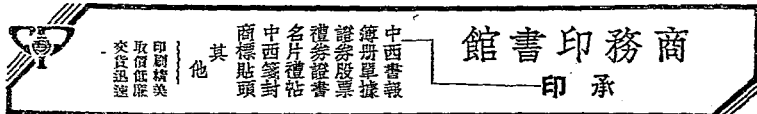 商務印書館
承印
中西書報
簿册單據
證券股票
禮券證書
名片禮帖
中西箋封
商標貼頭
其他
印刷精美
取價低廉
交貨迅速